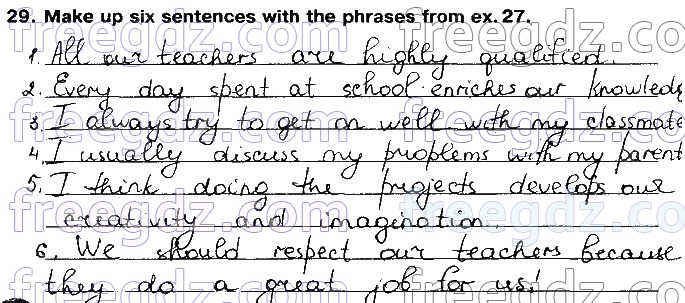 29. Make up six sentences with the phrases from ex. 27.
1. All our teachers are highly qualified.
2. Every day spent at school enriches our knowledg
3. I always try to get on well with my classmate
4. I usually discuss my problems with my parent
5. I think doing the projects develops our
creativity and imagination.
6. We should respect our teachers because
they do a great job for us!
freegdz.com